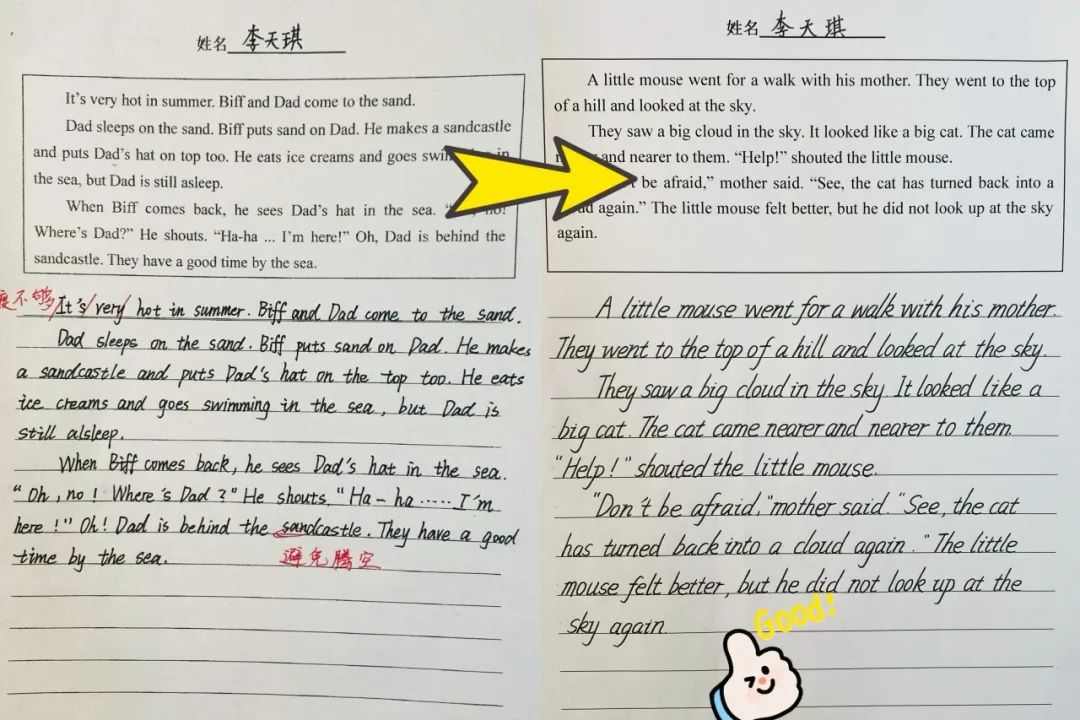 姓名 李天琪
It's very hot in summer. Biff and Dad come to the sand.
Dad sleeps on the sand. Biff puts sand on Dad. He makes a sandcastle
and puts Dad's hat on top too. He eats ice creams and goes in
the sea, but Dad is still asleep.
When Biff comes back, he sees Dad's hat in the sea. no!
Where's Dad?" He shouts. "Ha-ha ... I'm here!" Oh, Dad is behind the
sandcastle. They have a good time by the sea.
度不够
It's very hot in summer. Biff and Dad come to the sand.
Dad sleeps on the sand. Biff puts sand on Dad. He makes
a sandcastle and puts Dad's hat on the top too. He eats
ice creams and goes swimming in the sea, but Dad is
still alsleep.
When Biff comes back, he sees Dad's hat in the sea.
"Oh, no! Where's Dad?" He shouts. "Ha-ha ...... I'm
here!" Oh! Dad is behind the sandcastle. They have a good
time by the sea.
避免腾空
姓名 李天琪
A little mouse went for a walk with his mother. They went to the top
of a hill and looked at the sky.
They saw a big cloud in the sky. It looked like a big cat. The cat came
and nearer to them. "Help!" shouted the little mouse.
be afraid," mother said. "See, the cat has turned back into a
again." The little mouse felt better, but he did not look up at the sky
again.
A little mouse went for a walk with his mother.
They went to the top of a hill and looked at the sky.
They saw a big cloud in the sky It looked like a
big cat. The cat came nearer and nearer to them.
"Help!" shouted the little mouse.
"Don't be afraid," mother said. "See, the cat
has turned back into a cloud again." The little
mouse felt better, but he did not look up at the
sky again.
Good!